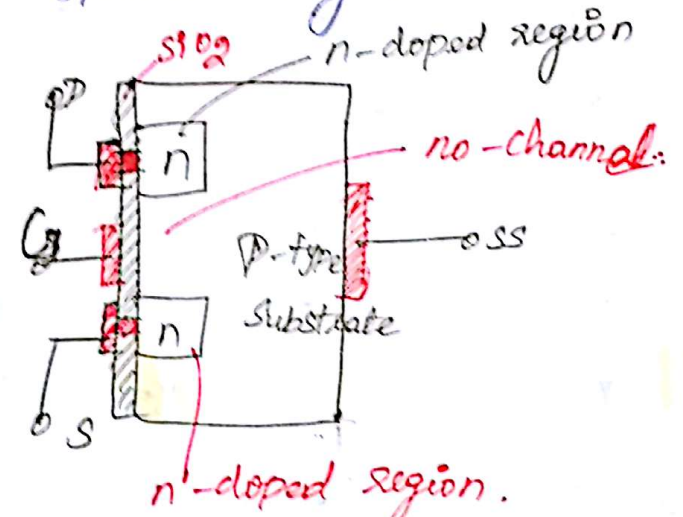 SiO2
n-doped region
D
n
no-channel.
G
p-type
SS
substrate
n
S
n-doped region.